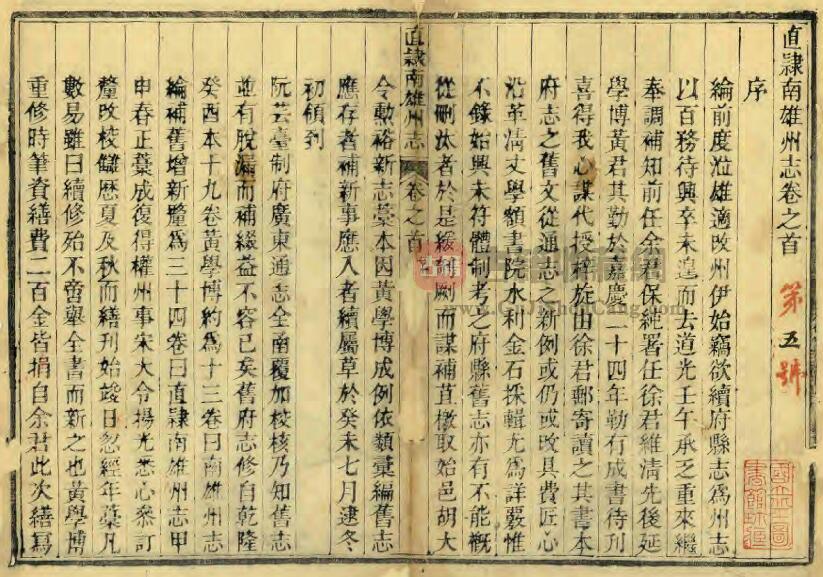 直隸南雄州志卷之首
第五號
序
綸前度涖雄適改州伊始竊欲續府縣志為州志
以百務待興卒未遑而去道光壬午承乏重來繼
奉調補知前任余君保純署任徐君維清先後延
學博黃君其勤於嘉慶二十四年勒有成書待刊
喜得我心謀代授梓旋由徐君郵寄讀之其書本
府志之舊文從通志之新例或仍或改具費匠心
沿革清丈學額書院水利金石採輯尤為詳覈惟
不錄始興未符體制考之府縣舊志亦有不能槪
從刪汰者於是緩剞劂而謀補苴檄取始邑胡大
直隸南雄州志 卷之首
令勳裕新志藁本因黃學博成例依類彙編舊志
應存者補新事應入者續屬草於癸未七月逮冬
初領到
阮芸臺制府廣東通志全南覆加校核乃知舊志
並有脫漏而補綴益不容已矣舊府志修自乾隆
癸酉本十九卷黃學博約為十三卷曰南雄州志
綸補舊增新釐為三十四卷曰直隸南雄州志甲
申春正藁成復得權州事宋大令揚光悉心叅訂
釐改校讎歷夏及秋而繕刊始竣日忽經年藁凡
數易雖曰續修殆不啻舉全書而新之也黃學博
重修時筆資繕費二百金皆捐自余君此次繕寫